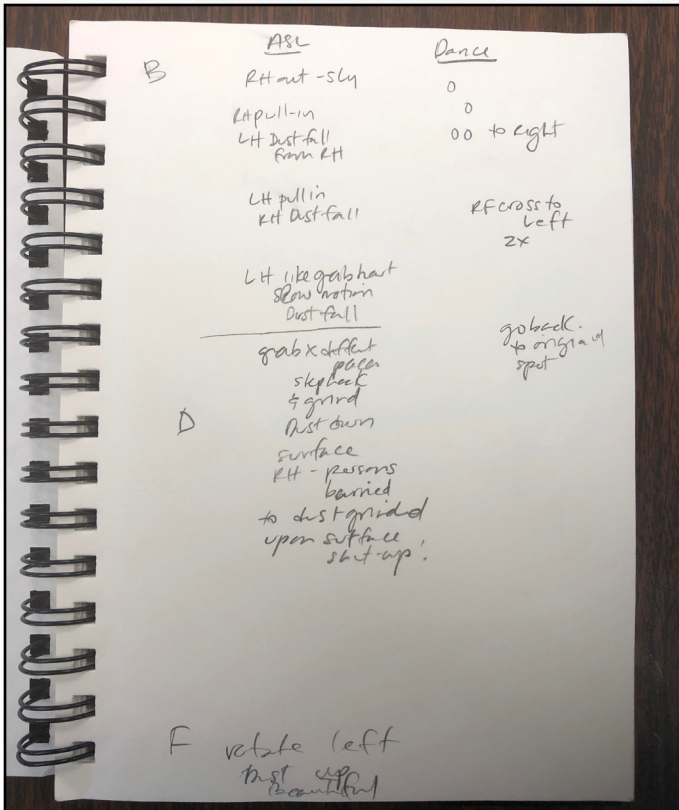 ASL
Dance
B
RH out - sly
O
RH pull-in
O
LH Dust fall
from RH
OO to right
LH pull in
RH Dust fall
RF cross to
Left
2x
LH like grab heart
slow motion
Dust fall
go back
to original
spot
grab x diffent
places
step back
& grind
D
Dust down
surface
RH - persons
barried
to dust grinded
upon surface
shut-up!
F rotate left
Dust up
Beautiful